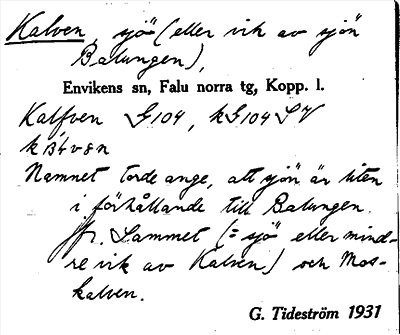 Kalven, sjö (eller vik av sjön
Balungen),
Envikens sn, Falu norra tg, Kopp. l.
Kalfven G104, kG104 SV
Namnet torde ange, att sjön är liten
i förhållande till Balungen.
Jfr. Lammet (= sjö eller mind-
re vik av Kalven) och Mos-
kalven.
G. Tideström 1931